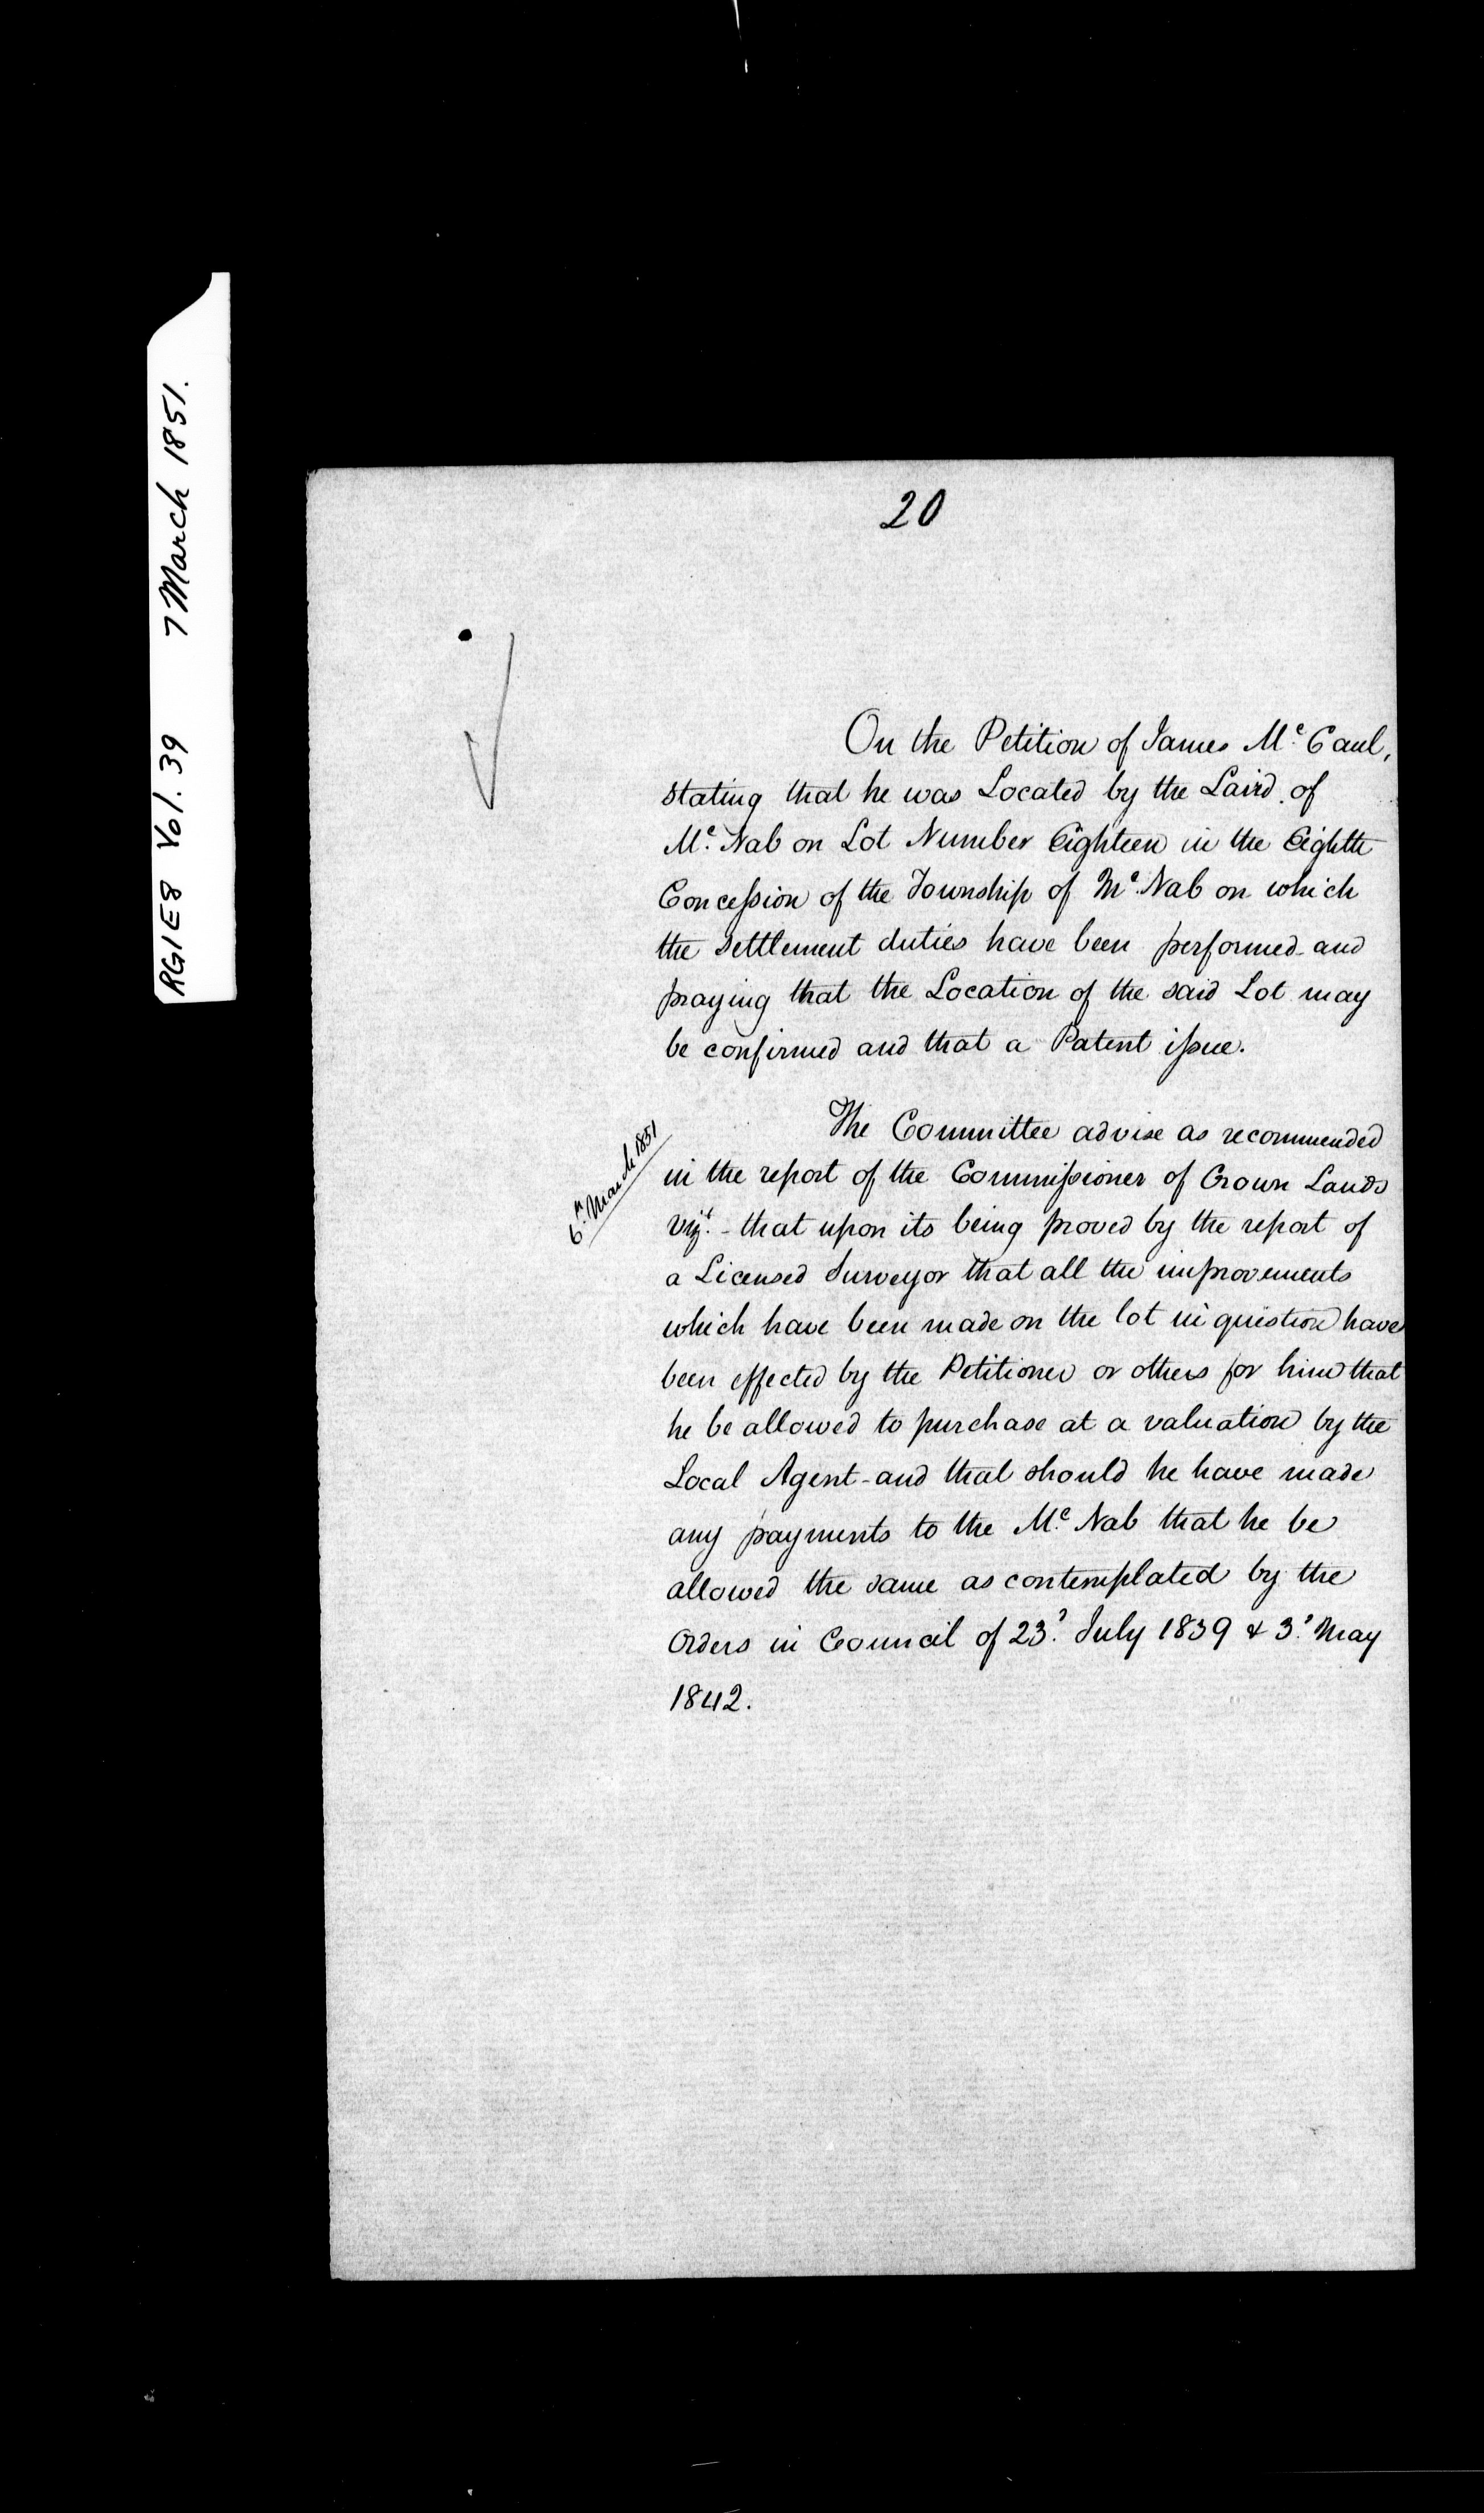 RG1E8 Vol. 39 7 March 1851.
20
On the Petition of James Mc. Caul,
stating that he was Located by the Laird of
Mc. Nab on Lot Number Eighteen in the Eighth
Concession of the Township of Mc. Nab on which
the settlement duties have been performed and
praying that the Location of the said Lot may
be confirmed and that a Patent issue.
6th March 1851
The Committee advise as recommended
in the report of the Commissioner of Crown Lands
vizt. - that upon its being proved by the report of
a Licensed Surveyor that all the improvements
which have been made on the lot in question have
been effected by the Petitioner or others for him that
he be allowed to purchase at a valuation by the
Local Agent - and that should he have made
any payments to the Mc. Nab that he be
allowed the same as contemplated by the
Orders in Council of 23d. July 1839 & 3d. May
1842.